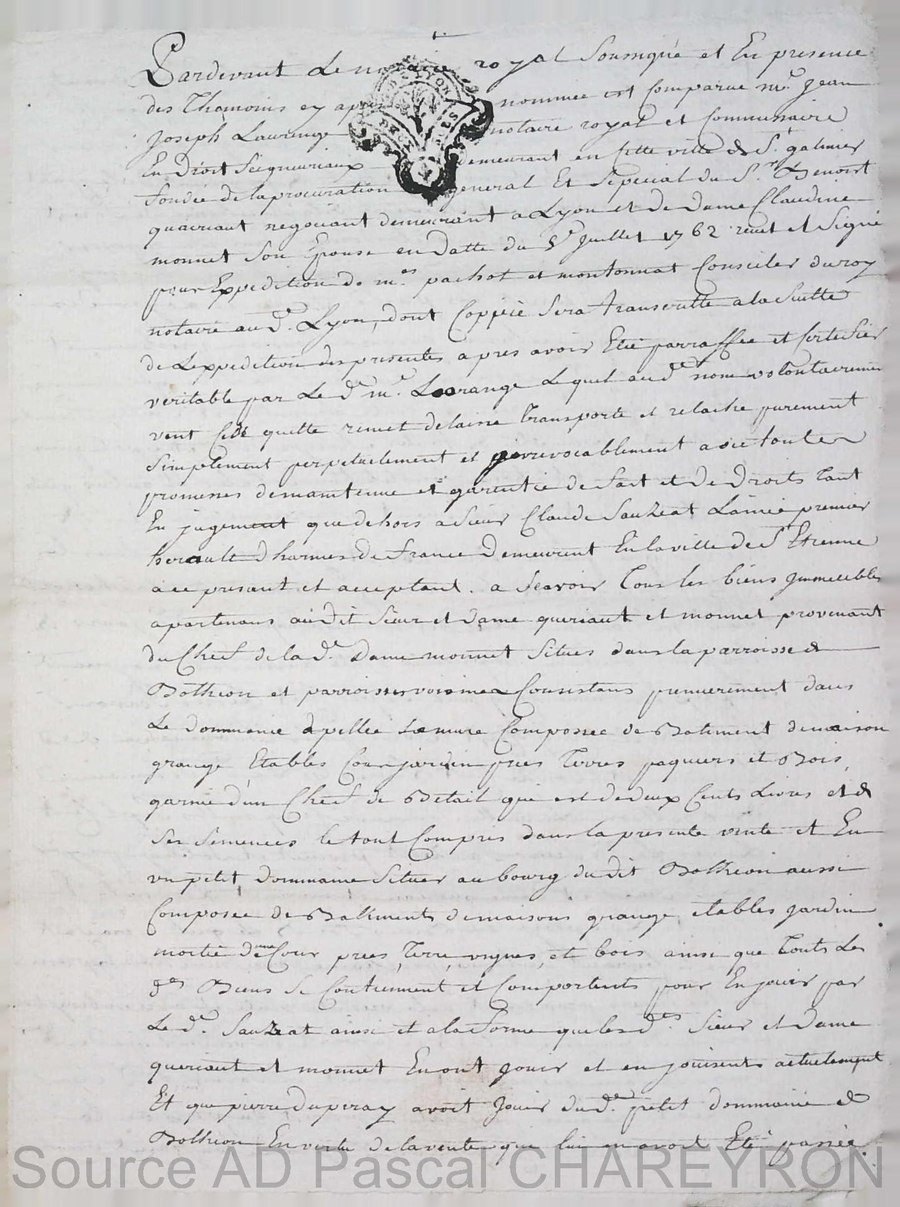 Pardevant le notaire royal Soussigné et En presence
des Thamoins cy apres nommée est Comparue mr. Jean
Joseph Laurange notaire royal et Commissaire
En Droit Seigneuriaux demeurant en Cette ville de St. galmier
fondée de la procuration general Et Special du Sr. Benoist
queriaut negotiant demeurant a Lyon et de Dame Claudine
monnet Son Epouse en datte du 5e. Juillet 1762 receu et Signé
pour Expedition de mes pachot et montonnat Conseiler du roy
notaire au d. Lyon, dont Coppie Sera transcritte a la Suitte
de L'expedition des presentes apres avoir Eté parraffée et Certifier
veritable par Le d. mr. Laurange Lequel au d. nom volontairemen
vent Cede quitte remet delaisse transporte et relache purement
Simplement perpetuellement et jrrevocablement avec toutes
promesses de maintenue et garentie de fait et de Droits tant
En jugement que dehors a Sieur Claude Sauzeat Lainée premier
herault Dharmes de France Demeurent En la ville de St. Etienne
a ce presant et acceptant. a Scavoir Tous les biens Jmmeubles
apartenans audit Sieur et Dame queriaut et monnet provenant
du Chef de la d. Dame monnet Situés dans la parroisse de
Bothéon et parroisses voisines Consistans premierement dans
Le dommaine apellée Lamure Composée de Batiment de maison
grange Etables Cour jardin prés Terres paquiers et Bois,
garnie d'un Cheft de Betail qui est de deux Cents Livres et de
Ses Semences le tout Compris dans la presente vente et En
un petit dommaine Situer au bourg du dit Bothéon aussi
Composée de Batiments de maisons grange, etables jardin
moitié d'une Cour prés, Terre, vignes, et bois ainsi que touts Les
ds. Biens Se Contienment et Comportents pour En jouir par
Le d. Sauzeat ainsi et a la forme que les ds. Sieur et Dame
queriaut et monnet En ont jouir et en jouissent actuellement
Et que pierre duperay avoit jouir du d. petit dommaine de
Bothéon En vertu de la vente que lui en avoit Eté passée
Source AD Pascal CHAREYRON